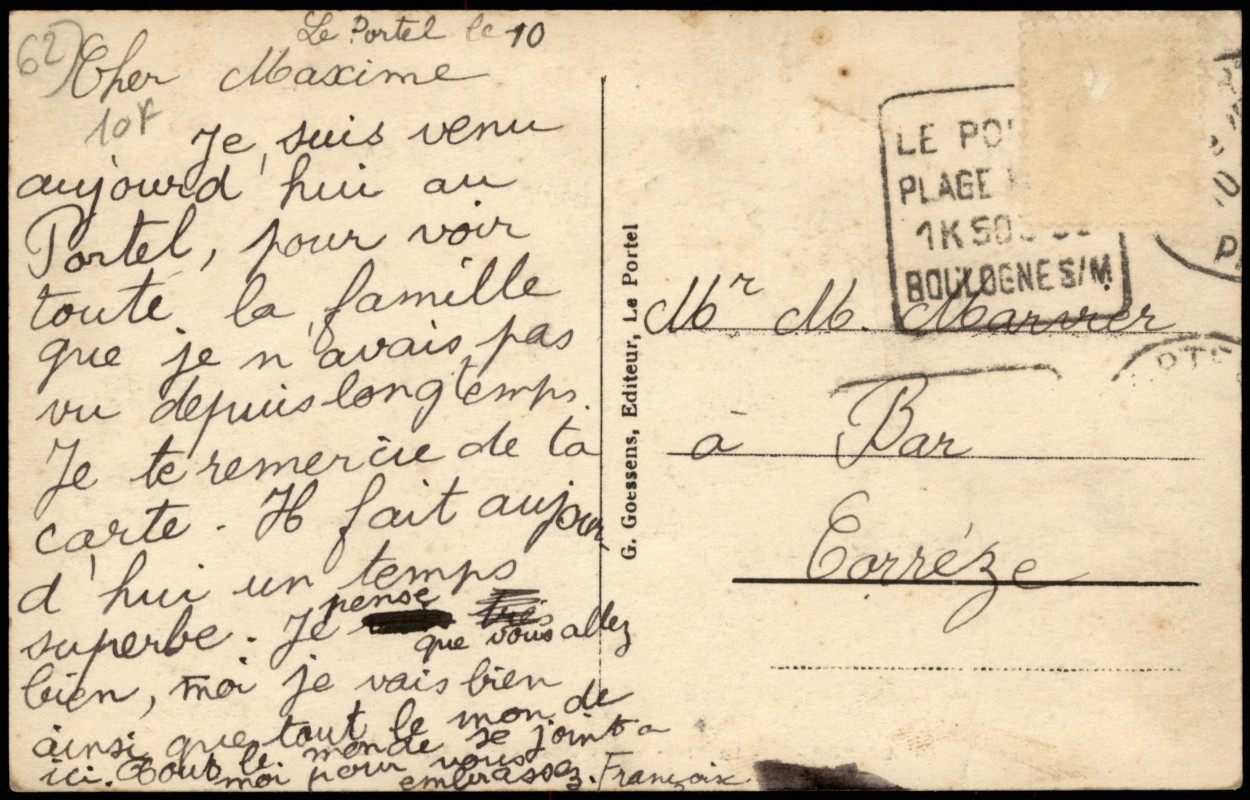 62)
10F
Le Portel le 10
Cher Maxime
Je suis venu
aujourd'hui au
Portel, pour voir
toute la famille
que je n'avais pas
vu depuis longtemps.
Je te remercie de ta
carte. Il fait aujour
d'hui un temps
superbe. Je pense
que vous allez
bien, moi je vais bien
ainsi que tout le monde
ici. Tout le monde se joint a
moi pour vous
embrassez. François
G. Goessens, Editeur, Le Portel
LE PO
PLAGE
1K500
BOULOGNE S/M
Mr M. Marvier
à Bar
Corréze